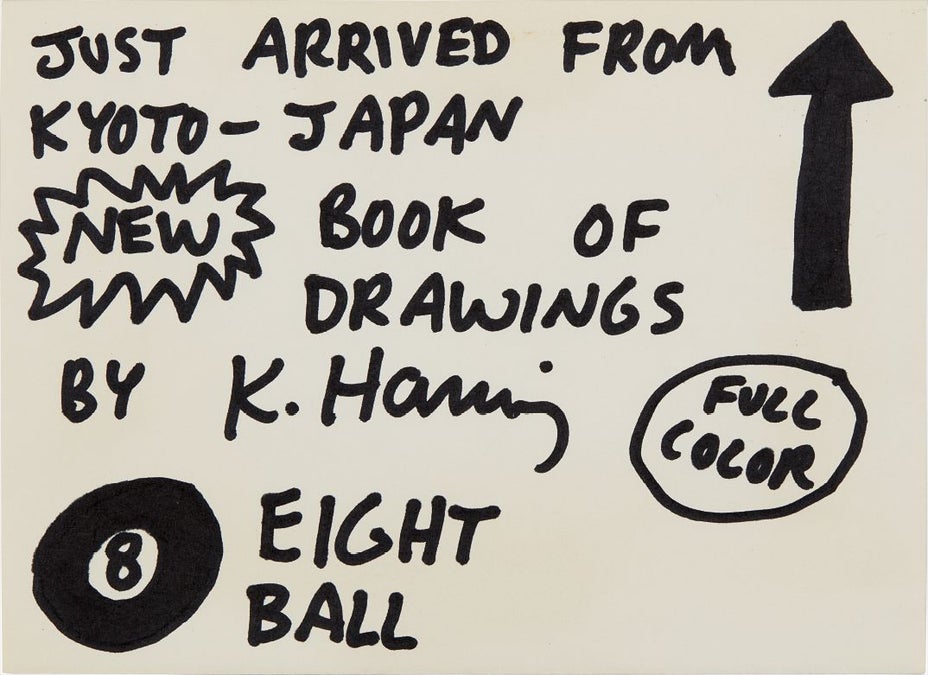 JUST ARRIVED FROM
KYOTO - JAPAN
NEW BOOK OF
DRAWINGS
BY K. Haring
FULL
COLOR
8 EIGHT
BALL